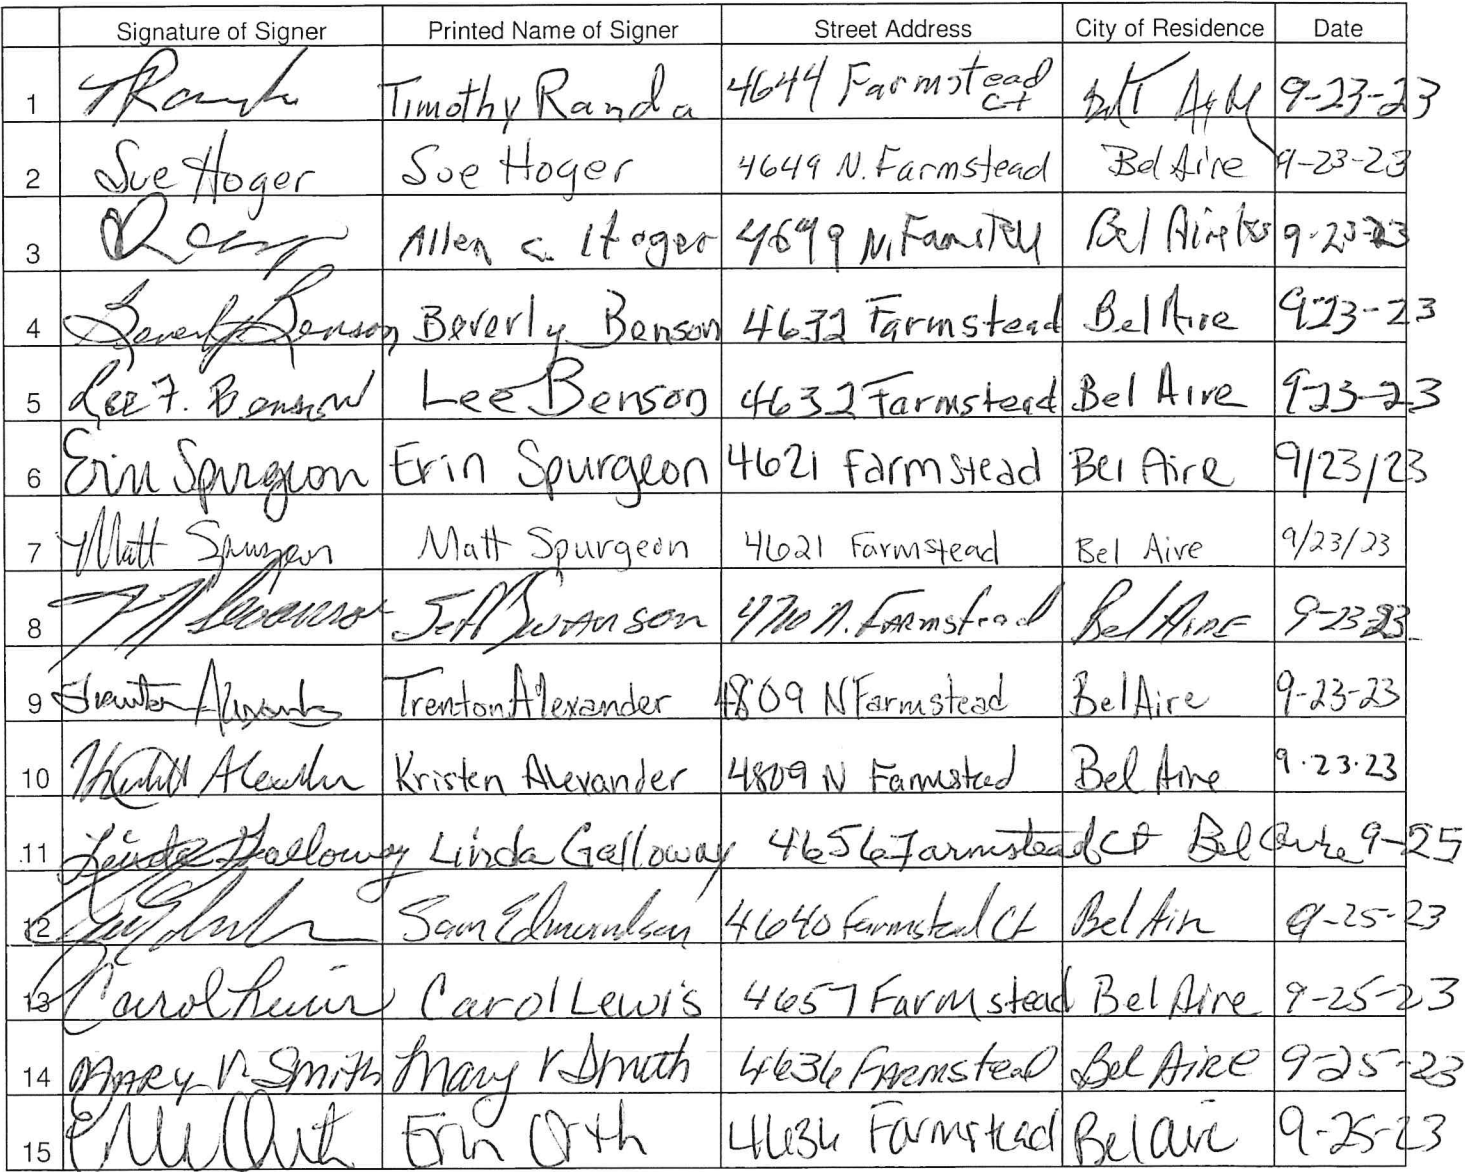 Signature of Signer Printed Name of Signer Street Address City of Residence Date
1 Timothy Randa 4644 Farmstead ct 9-23-23
2 Sue Hoger Sue Hoger 4649 N. Farmstead Bel Aire 9-23-23
3 Allen C. Hoger 4649 N. Bel Aire 9-23-23
4 Beverly Benson Beverly Benson 4632 Farmstead Bel Aire 9-23-23
5 Lee F. Benson Lee Benson 4632 Farmstead Bel Aire 9-23-23
6 Erin Spurgeon Erin Spurgeon 4621 Farmstead Bel Aire 9/23/23
7 Matt Spurgeon Matt Spurgeon 4621 Farmstead Bel Aire 9/23/23
8 Jeff Swanson 4710 N. Farmstead Bel Aire 9-23-23
9 Trenton Alexander Trenton Alexander 4809 N Farmstead Bel Aire 9-23-23
10 Kristen Alexander 4809 N Farmstead Bel Aire 9.23.23
11 Linda Galloway Linda Galloway 4656 Farmstead Ct Bel Aire 9-25
12 Sam Edmundson 4640 Farmstead Ct Bel Air 9-25-23
13 Carol Lewis Carol Lewis 4657 Farmstead Bel Aire 9-25-23
14 Mary V. Smith Mary V Smith 4636 Farmstead Bel Aire 9-25-23
15 Erin Orth 4636 Farmstead Bel aire 9-25-23